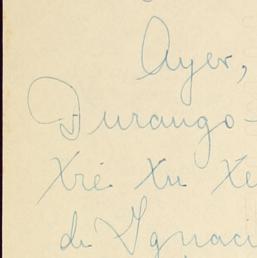 Ayer,
Durango-
Xré Xu Xe
de Ignaci